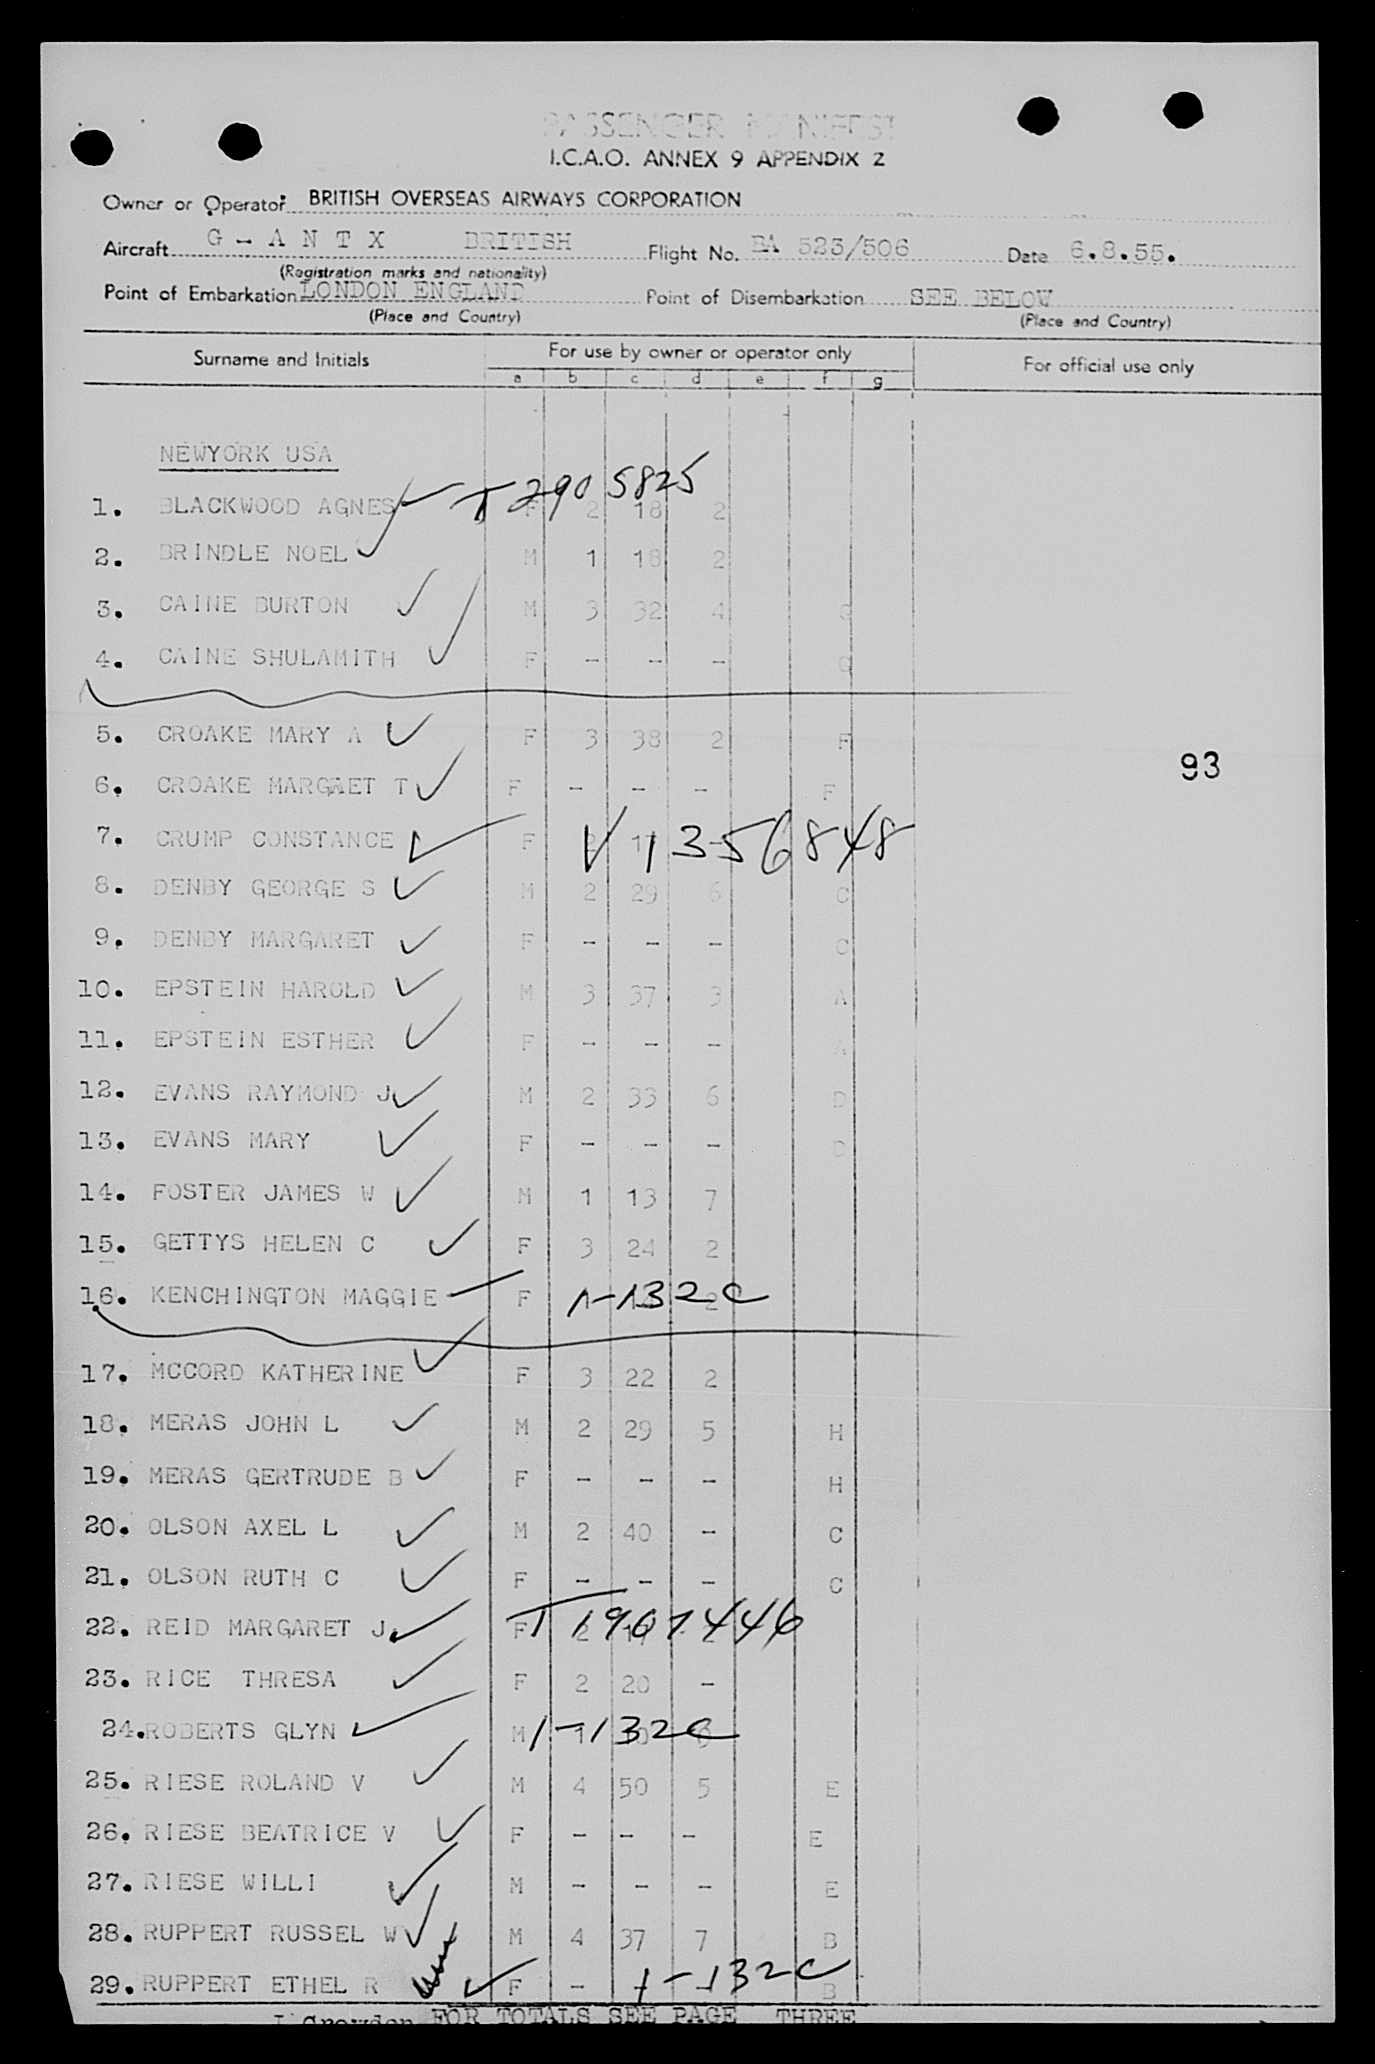 PASSENGER MANIFEST
I.C.A.O. ANNEX 9 APPENDIX 2
Owner or Operator BRITISH OVERSEAS AIRWAYS CORPORATION
Aircraft G - A N T X BRITISH Flight No. BA 523/506 Date 6.8.55.
(Registration marks and nationality)
Point of Embarkation LONDON ENGLAND Point of Disembarkation SEE BELOW
(Place and Country) (Place and Country)
Surname and Initials For use by owner or operator only For official use only
a b c d e f g
NEWYORK USA
T 290 5825
1. BLACKWOOD AGNES F 2 18 2
2. BRINDLE NOEL M 1 18 2
3. CAINE BURTON M 3 32 4 G
4. CAINE SHULAMITH F - - - G
5. CROAKE MARY A F 3 38 2 F
93
6. CROAKE MARGAET T F - - - F
7. CRUMP CONSTANCE F V 1356848
8. DENBY GEORGE S M 2 29 6 C
9. DENBY MARGARET F - - - C
10. EPSTEIN HAROLD M 3 37 3 A
11. EPSTEIN ESTHER F - - - A
12. EVANS RAYMOND J M 2 33 6 D
13. EVANS MARY F - - - D
14. FOSTER JAMES W M 1 13 7
15. GETTYS HELEN C F 3 24 2
16. KENCHINGTON MAGGIE F 1-132C 2
17. MCCORD KATHERINE F 3 22 2
18. MERAS JOHN L M 2 29 5 H
19. MERAS GERTRUDE B F - - - H
20. OLSON AXEL L M 2 40 - C
21. OLSON RUTH C F - - - C
22. REID MARGARET J. F T 1907446
23. RICE THRESA F 2 20 -
24. ROBERTS GLYN M 1-132C
25. RIESE ROLAND V M 4 50 5 E
26. RIESE BEATRICE V F - - - E
27. RIESE WILLI M - - - E
28. RUPPERT RUSSEL W M 4 37 7 B
29. RUPPERT ETHEL R F - 1-132C B
FOR TOTALS SEE PAGE THREE